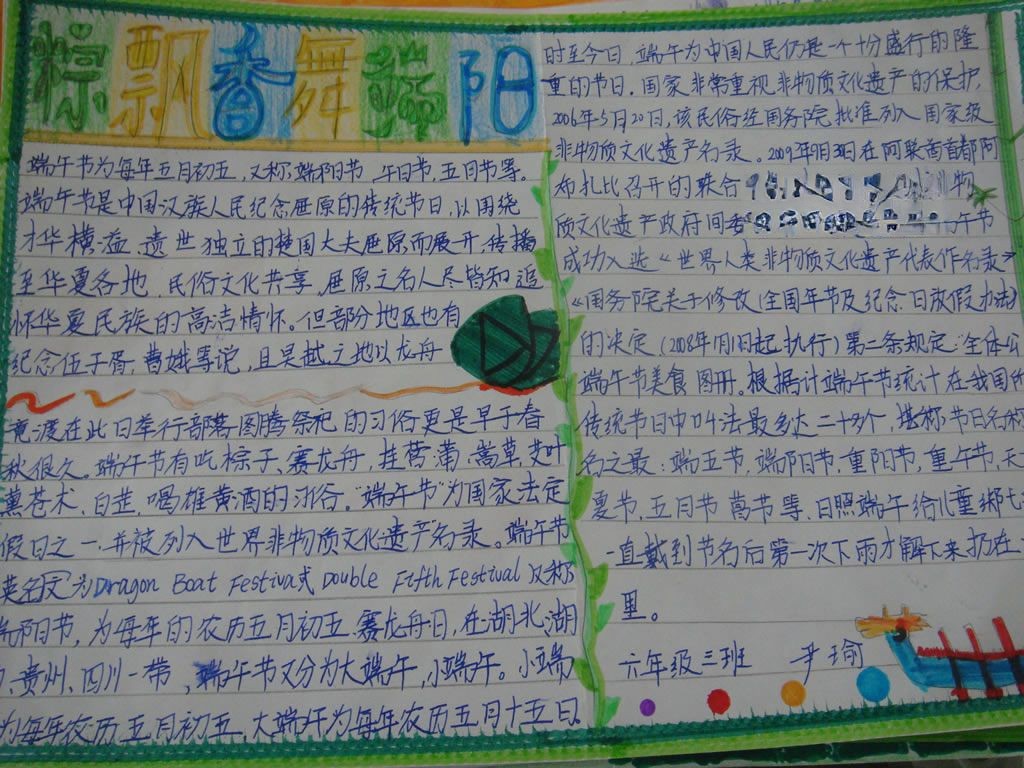 粽飘香舞端阳
端午节为每年五月初五，又称端阳节，午日节，五月节等。
端午节是中国汉族人民纪念屈原的传统节日，以围绕
才华横溢、遗世独立的楚国大夫屈原而展开，传播
至华夏各地，民俗文化共享，屈原之名人尽皆知，追
怀华夏民族的高洁情怀。但部分地区也有
纪念伍子胥，曹娥等说，且吴越之地以龙舟
竞渡在此日举行部落图腾祭祀的习俗更是早于春
秋很久。端午节有吃粽子、赛龙舟，挂菖蒲、蒿草、艾叶
薰苍术、白芷，喝雄黄酒的习俗。“端午节”为国家法定
假日之一，并被列入世界非物质文化遗产名录。端午节
英名文为Dragon Boat Festival或Double Fifth Festival 又称
端阳节，为每年的农历五月初五 赛龙舟日，在湖北、湖
、贵州、四川一带，端午节又分为大端午，小端午。小端
为每年农历五月初五，大端午为每年农历五月十五日。
时至今日，端午为中国人民仍是一个十分盛行的隆
重的节日。国家非常重视非物质文化遗产的保护，
2006年5月20日，该民俗经国务院批准列入国家级
非物质文化遗产名录。2009年9月30日在阿联酋首都阿
布扎比召开的联合 物
质文化遗产政府间委 午节
成功入选《世界人类非物质文化遗产代表作名录》
《国务院关于修改〈全国年节及纪念日放假办法〉
的决定（2008年1月1日起执行）第二条规定“全体公
端午节美食图册。根据计端午节统计在我国所
传统节日中叫法最多达二十多个，堪称节日名称
名之最：端五节，端阳节，重阳节，重午节，天
夏节，五月节 等、日照端午给儿童绑七
一直戴到节名后第一次下雨才解下来扔在
里。
六年级三班 尹瑜